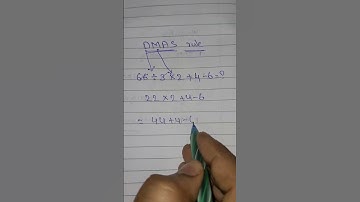 DMAS rule
66 ÷ 3 × 2 + 4 - 6 = ?
22 × 2 + 4 - 6
= 44 + 4 - 6